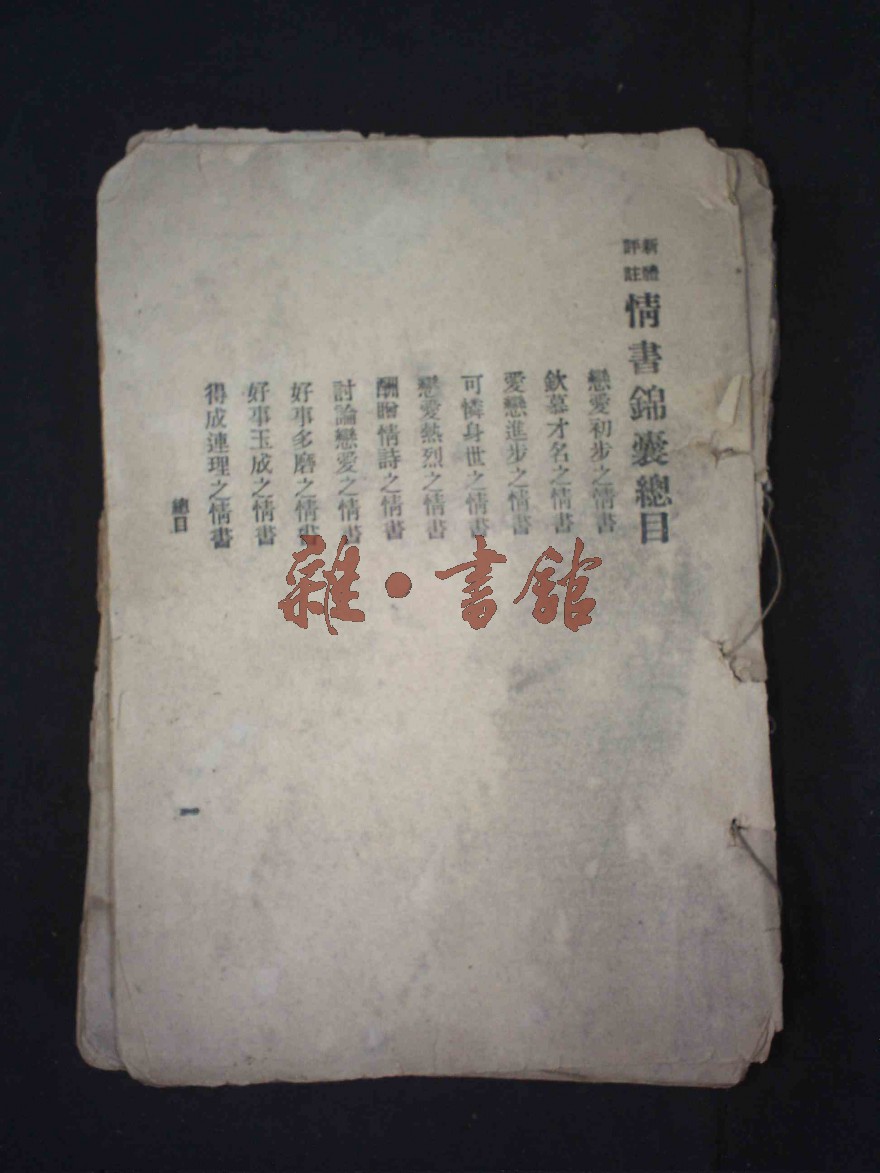 新體
評註
情書錦囊總目
戀愛初步之情書
欽慕才名之情書
愛戀進步之情書
可憐身世之情書
戀愛熱烈之情書
酬贈情詩之情書
討論戀愛之情書
好事多磨之情書
好事玉成之情書
得成連理之情書
總目
一
雜·書館